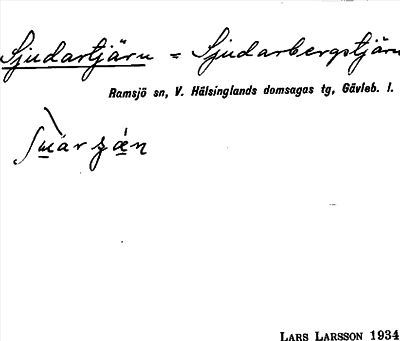 Sjudartjärn = Sjudarbergstjärn
Ramsjö sn, V. Hälsinglands domsagas tg, Gävleb. l.
LARS LARSSON 1934